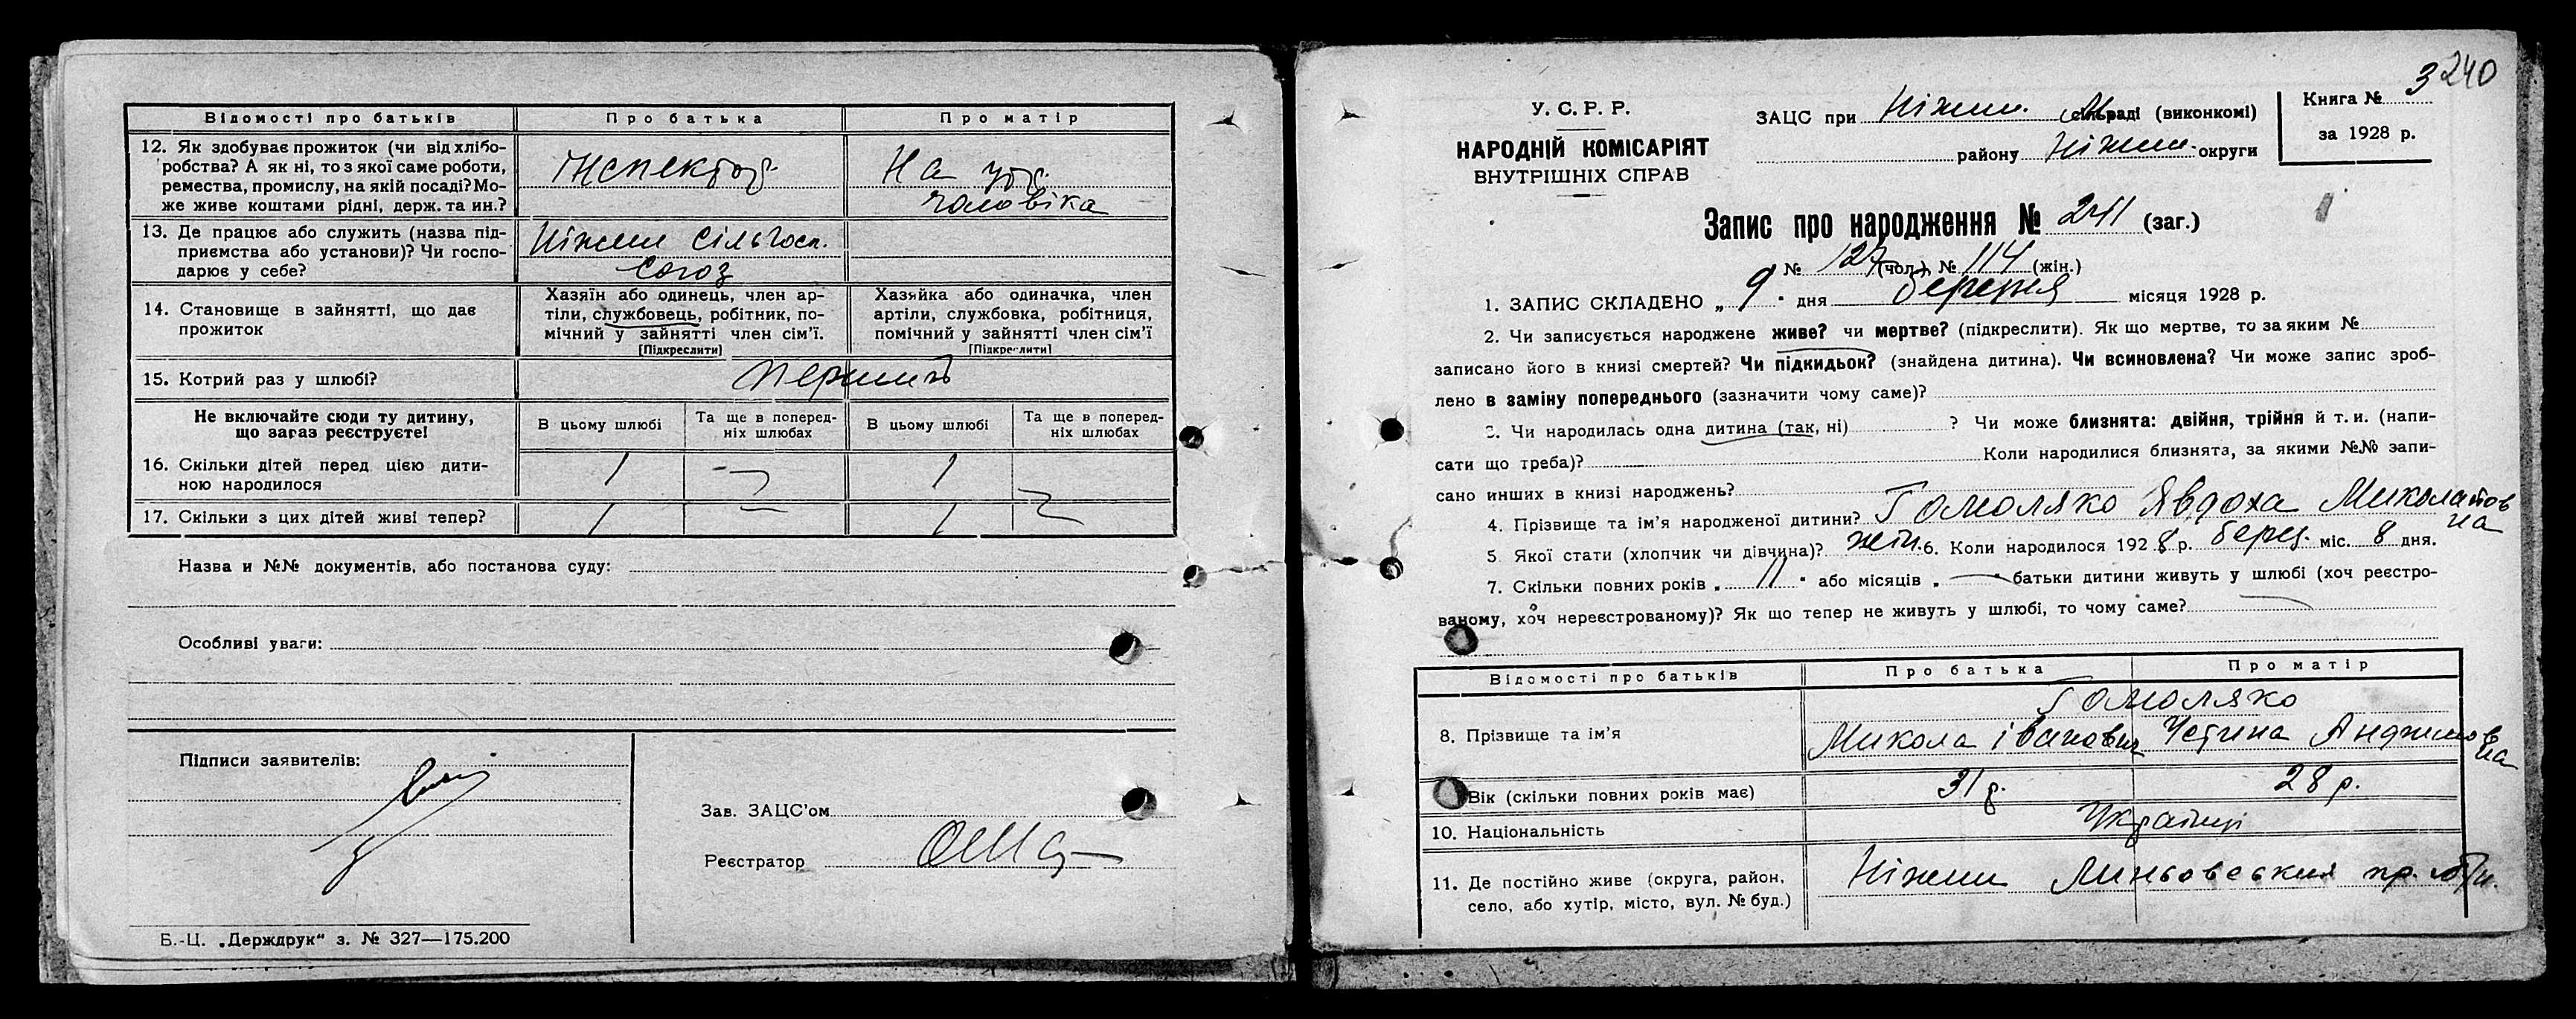 Відомості про батьків Про батька Про матір
12. Як здобуває прожиток (чи від хлібо-
робства? А як ні, то з якої саме роботи,
ремества, промислу, на якій посаді? Мо-
же живе коштами рідні, держ. та ин.?
Інспектор На утр.
чоловіка
13. Де працює або служить (назва під-
приємства або установи)? Чи госпо-
дарює у себе?
Ніжин Сільгосп.
союз
14. Становище в зайнятті, що дає
прожиток
Хазяїн або одинець, член ар-
тілі, службовець, робітник, по-
мічний у зайнятті член сім'ї.
[Підкреслити]
Хазяйка або одиначка, член
артілі, службовка, робітниця,
помічний у зайнятті член сім'ї
[Підкреслити]
15. Котрий раз у шлюбі? перший
Не включайте сюди ту дитину,
що зараз реєструєте!
В цьому шлюбі Та ще в поперед-
ніх шлюбах В цьому шлюбі Та ще в поперед-
ніх шлюбах
16. Скільки дітей перед цією дити-
ною народилося 1 — 1
17. Скільки з цих дітей живі тепер? 1 — 1
Назва и №№ документів, або постанова суду:
Особливі уваги:
Підписи заявителів:
Зав. ЗАЦС'ом
Реєстратор
Б.-Ц. „Держдрук" з. № 327—175.200
240
У. С. Р. Р.
НАРОДНІЙ КОМІСАРІЯТ
ВНУТРІШНІХ СПРАВ
ЗАЦС при Ніжин. сільраді (виконкомі)
району Ніжин. округи
Книга № 3
за 1928 р.
Запис про народження № 241 (заг.)
№ 127 (чол.), № 114 (жін.)
1. ЗАПИС СКЛАДЕНО „ 9 " дня березня місяця 1928 р.
2. Чи записується народжене живе? чи мертве? (підкреслити). Як що мертве, то за яким №
записано його в книзі смертей? Чи підкидьок? (знайдена дитина). Чи всиновлена? Чи може запис зроб-
лено в заміну попереднього (зазначити чому саме)?
3. Чи народилась одна дитина (так, ні) ? Чи може близнята: двійня, трійня й т. и. (напи-
сати що треба)? Коли народилися близнята, за якими №№ запи-
сано инших в книзі народжень?
4. Прізвище та ім'я народженої дитини? Гомоляко Явдоха Миколаїов
на
5. Якої стати (хлопчик чи дівчина)? жін. 6. Коли народилося 1928 р. берез. міс. 8 дня.
7. Скільки повних років „ 11 " або місяців „ — " батьки дитини живуть у шлюбі (хоч реєстро-
ваному, хоч нереєстрованому)? Як що тепер не живуть у шлюбі, то чому саме?
Відомості про батьків Про батька Про матір
Гомоляко
8. Прізвище та ім'я Микола Іванович Устина
на
Вік (скільки повних років має) 31 р. 28 р.
10. Національність Українці
11. Де постійно живе (округа, район,
село, або хутір, місто, вул. № буд.)
Ніжин